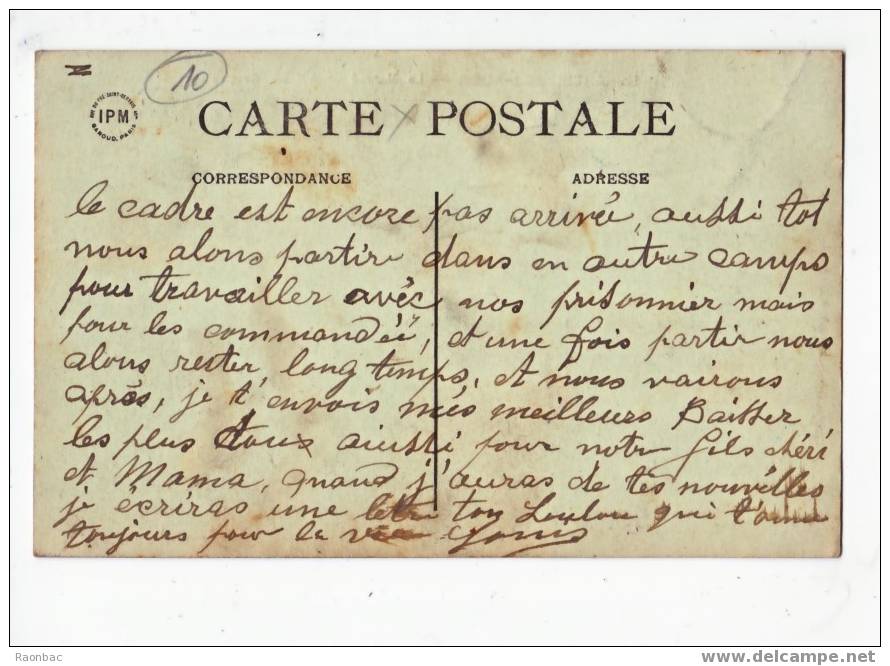 10
RUE DU PRÉ-SAINT-GERVAIS
IPM
BAROUD, PARIS
CARTE POSTALE
CORRESPONDANCE
ADRESSE
le cadre est encore pas arrivé, aussi tot
nous alons partir dans en autre camps
pour travailler avéc nos prisonnier mais
pour les commandéé, et une fois partir nous
alons rester long temps, et nous vairous
aprés, je t'envois més meilleurs Baisser
les plus doux aiussi pour notr fils chéri
et Mama, quand j'auras de tes nouvélles
je écriras une letr ton Loulou qui t'aime
toujours pour la vie Louis
Raonbac
www.delcampe.net